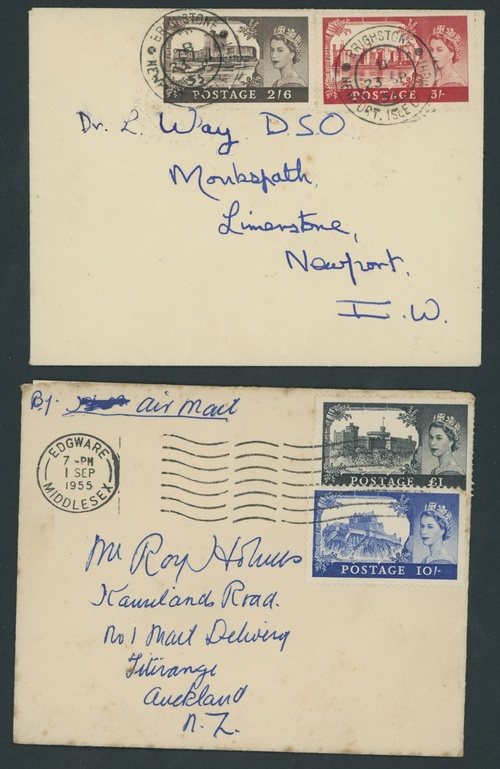 BRIGHSTONE
B
23 SP
55
POSTAGE 2/6
BRIGHSTONE
B
23 SP
NEWPORT. ISLE OF WIGHT
POSTAGE 5/-
Dr. L. Way DSO
Monkspath,
Limerstone,
Newport,
I.W.
By air mail
EDGWARE
7-PM
1 SEP
1955
MIDDLESEX
POSTAGE £1
POSTAGE 10/-
Mr Roy Holmes
Road.
No 1 Mail Delivery
Titirangi
Auckland
N.Z.